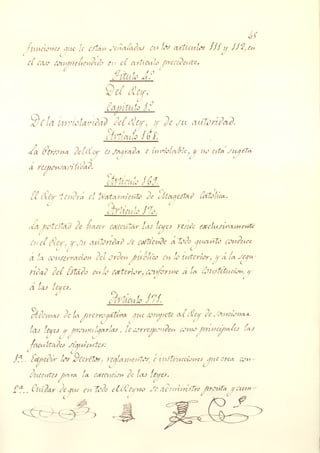 65
funciones que le estan señaladas en los articulos 111 y 112, en
el caso comprehendido en el articulo precedente.
Titulo 4º.
Del Rey.
Capitulo 1º.
De la inviolavidad del Rey, y de su autoridad.
Articulo 168.
La Persona del Rey es sagrada e inviolable, y no está sugeta
á responsavilidad.
Articulo 169.
El Rey tendrá el tratamiento de Magestad Católica.
Articulo 170.
La potestad de hacer executar las leyes reside exclusivamente
en el Rey, y su autoridad se extiende á todo quanto conduce
á la conservacion del orden público en lo interior, y á la segu-
ridad del Estado en lo exterior, conforme á la Constitucion, y
á las leyes.
Articulo 171.
Ademas de la prerrogativa que compete al Rey de sancionar
las leyes y promulgarlas, le corresponden como principales las
facultades siguientes:
1ª. Expedir los Decretos, reglamentos, é instrucciones que crea con-
ducentes para la execucion de las leyes.
2ª. Cuidar de que en todo el Reyno se administre pronta y cum-